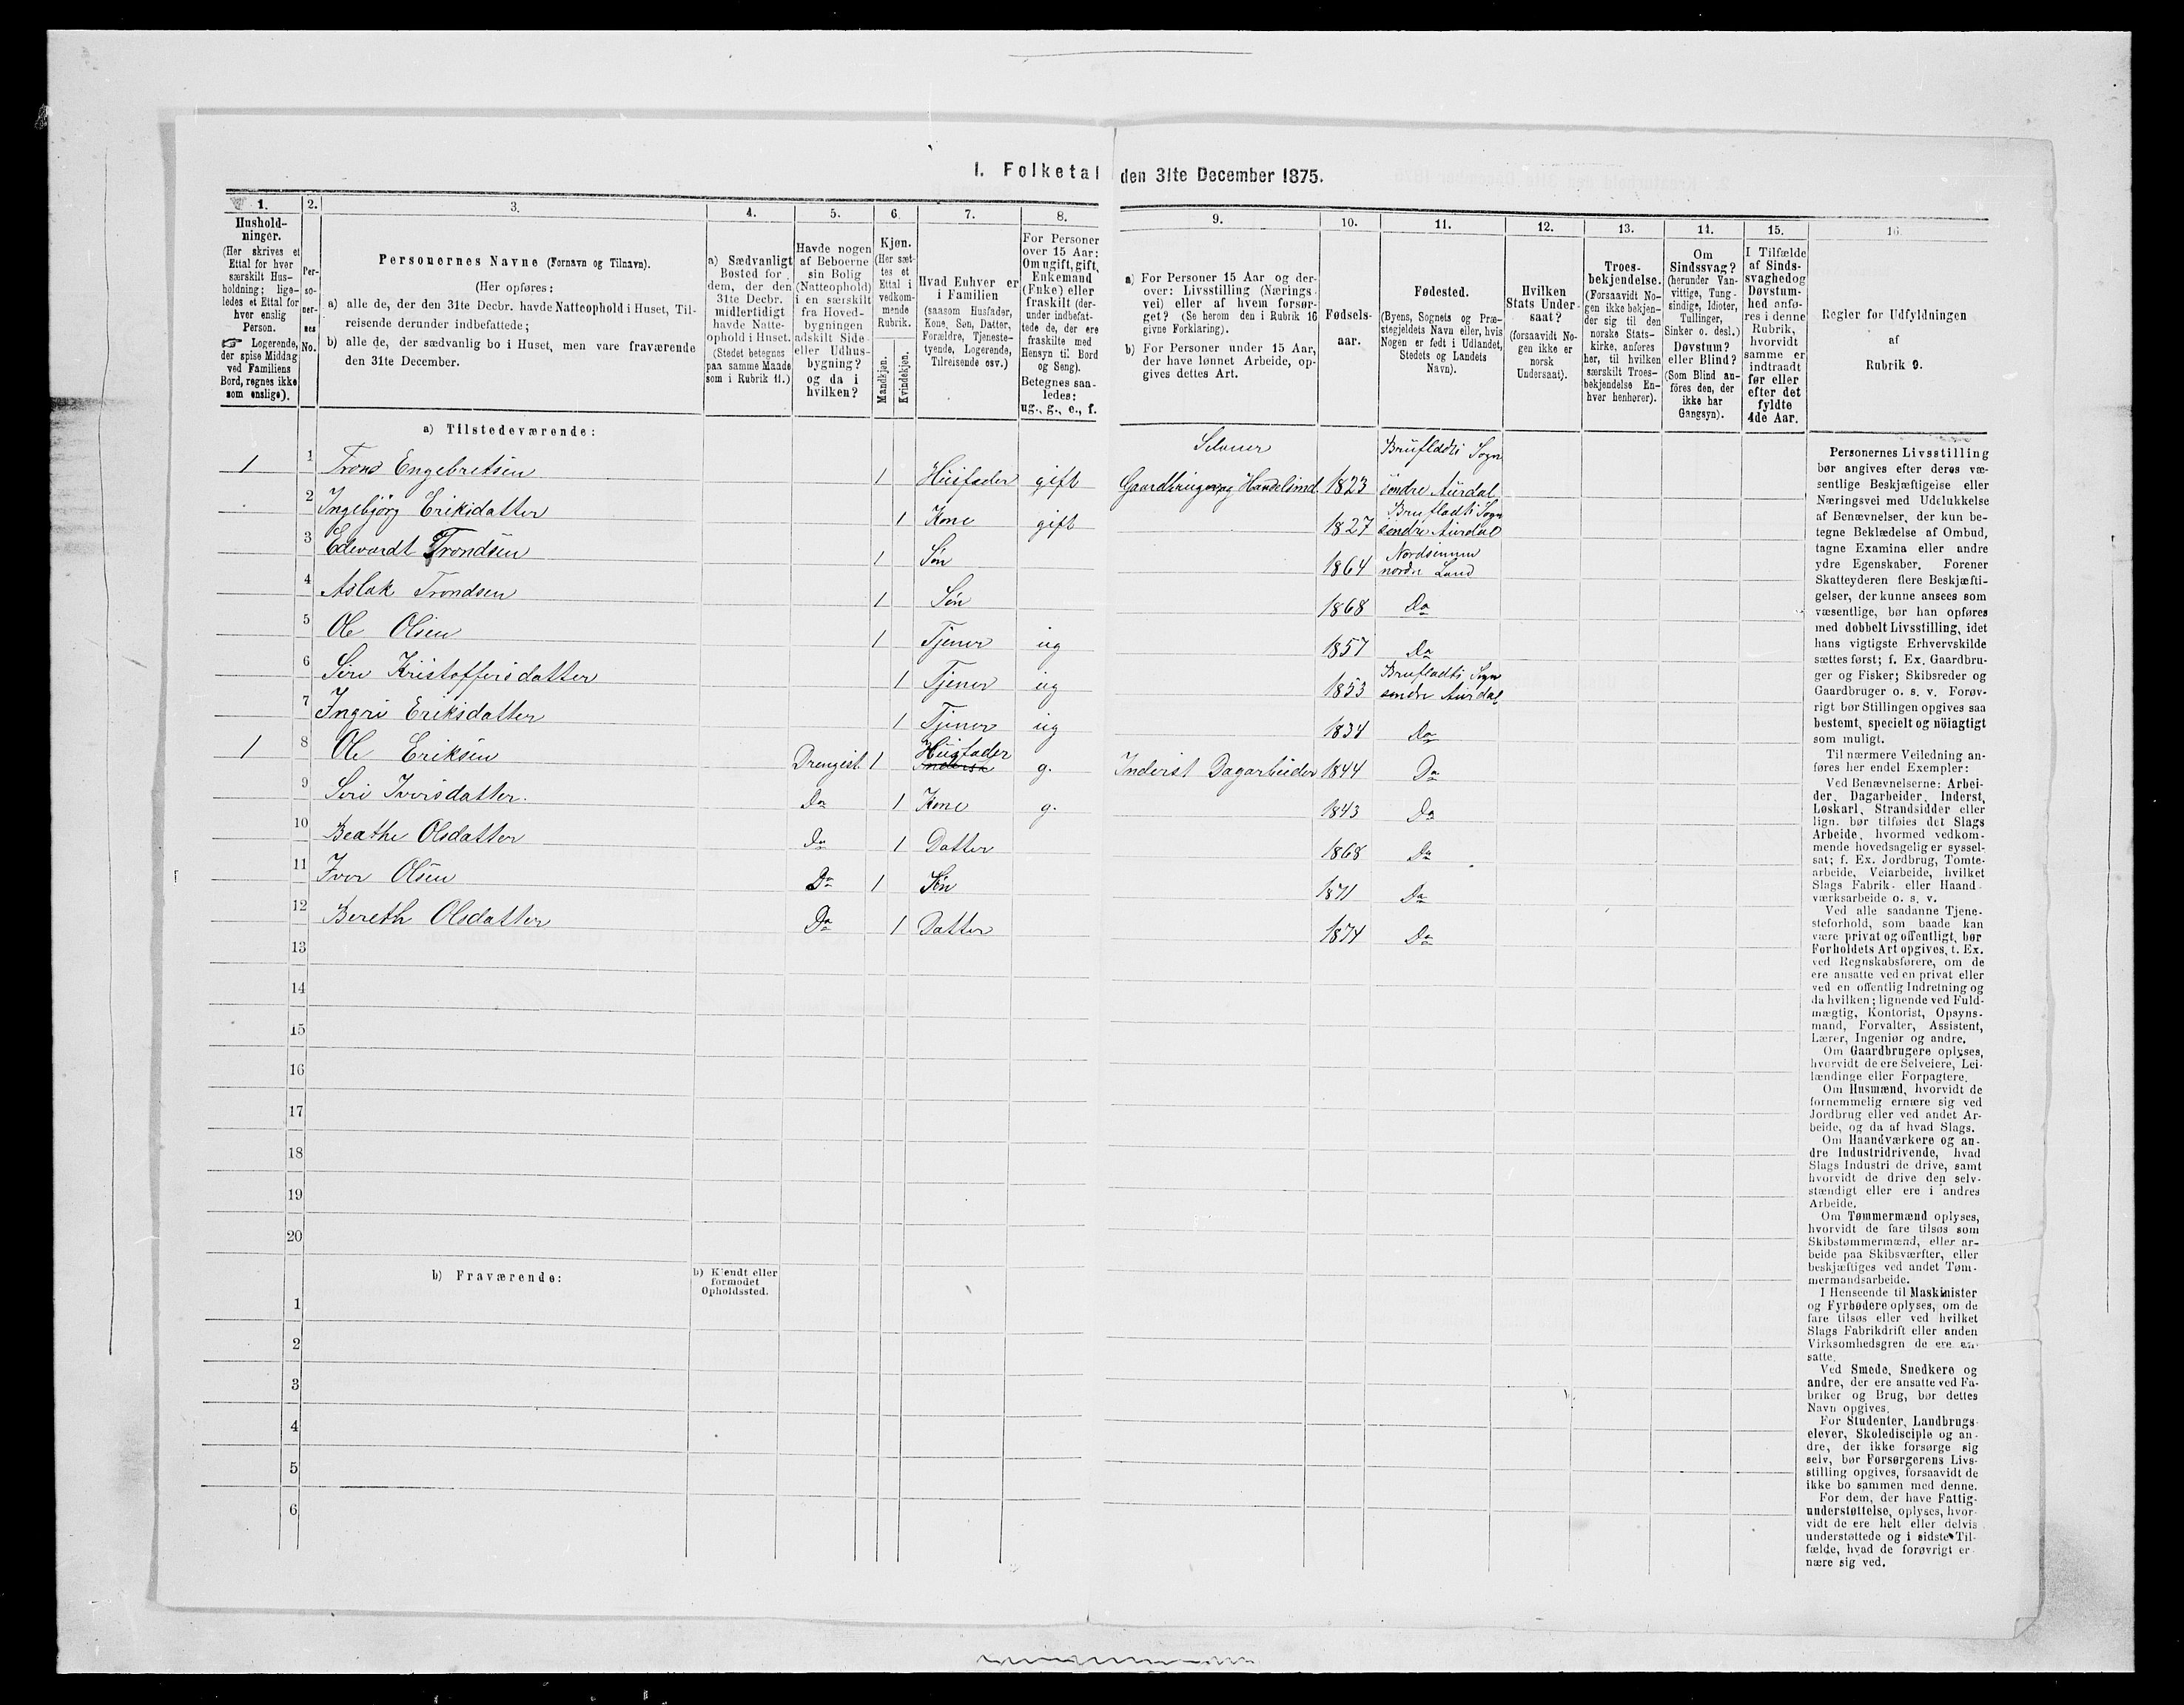 I. Folketal den 31te December 1875.
1. 2. 3. 4. 5. 6. 7. 8. 9. 10. 11. 12. 13. 14. 15. 16.
Hushold-
ninger.
(Her skrives et
Ettal for hver
særskilt Hus-
holdning; lige-
ledes et Ettal for
hver enslig
Person.
☞ Logerende,
der spise Middag
ved Familiens
Bord, regnes ikke
som enslige).
Per-
so-
ner-
nes
No.
Personernes Navne (Fornavn og Tilnavn).
(Her opføres:
a) alle de, der den 31te Decbr. havde Natteophold i Huset, Til-
reisende derunder indbefattede;
b) alle de, der sædvanlig bo i Huset, men vare fraværende
den 31te December.
a) Sædvanligt
Bosted for
dem, der den
31te Decbr.
midlertidigt
havde Natte-
ophold i Huset.
(Stedet betegnes
paa samme Maade
som i Rubrik 11.)
Havde nogen
af Beboerne
sin Bolig
(Natteophold)
i en særskilt
fra Hoved-
bygningen
adskilt Side-
eller Udhus-
bygning?
og da i
hvilken?
Kjøn.
(Her sæt-
tes et
Ettal i
vedkom-
mende
Rubrik.
Mandkjøn.
Kvindekjøn.
Hvad Enhver er
i Familien
(saasom Husfader,
Kone, Søn, Datter,
Forældre, Tjeneste-
tyende, Logerende,
Tilreisende osv.)
For Personer
over 15 Aar:
Om ugift, gift,
Enkemand
(Enke) eller
fraskilt (der-
under indbefat-
tede de, der ere
fraskilte med
Hensyn til Bord
og Seng).
Betegnes saa-
ledes:
ug., g., e., f.
a) For Personer 15 Aar og der-
over: Livsstilling (Nærings-
vei) eller af hvem forsør-
get? (Se herom den i Rubrik 16
givne Forklaring).
b) For Personer under 15 Aar,
der have lønnet Arbeide, op-
gives dettes Art.
Fødsels-
aar.
Fødested.
(Byens, Sognets og Præ-
stegjeldets Navn eller, hvis
Nogen er født i Udlandet,
Stedets og Landets
Navn).
Hvilken
Stats Under-
saat?
(forsaavidt No-
gen ikke er
norsk
Undersaat).
Troes-
bekjendelse.
(Forsaavidt No-
gen ikke bekjen-
der sig til den
norske Stats-
kirke, anføres
her, til hvilken
særskilt Troes-
bekjendelse En-
hver henhører).
Om
Sindssvag?
(herunder Van-
vittige, Tung-
sindige, Idioter,
Tullinger,
Sinker o. desl.)
Døvstum?
eller Blind?
(Som Blind an-
føres den, der
ikke har
Gangsyn).
I Tilfælde
af Sinds-
svaghed og
Døvstum-
hed anfø-
res i denne
Rubrik,
hvorvidt
samme er
indtraadt
før eller
efter det
fyldte
4de Aar.
Regler for Udfyldningen
af
Rubrik 9.
a) Tilstedeværende:
Selveier Brufladts Sogn
1 1 Trond Engebretsen 1 Husfader gift Gaardbruger og Handelsmd. 1823 söndre Aurdal
2 Ingebjörg Eriksdatter 1 Kone gift 1827 Brufladts Sogn söndre Aurdal
3 Edevardt Trondsen 1 Søn 1864 Nordsinnen nordre Land
4 Aslak Trondsen 1 Søn 1868 Do
5 Ole Olsen 1 Tjener ug 1857 Do
6 Siri Kristoffersdatter 1 Tjener ug 1853 Brufladts Sogn söndre Aurdal
7 Ingri Eriksdatter 1 Tjener ug 1834 Do
1 8 Ole Eriksen Drengest. 1 Husfader g. Inderst Dagarbeider 1844 Do
9 Siri Iversdatter. Do 1 Kone g. 1843 Do
10 Beathe Olsdatter Do 1 Datter 1868 Do
11 Iver Olsen Do 1 Søn 1871 Do
12 Bereth Olsdatter Do 1 Datter 1874 Do
13
14
15
16
17
18
19
20
b) Fraværende:
b) Kjendt eller
formodet
Opholdssted.
1
2
3
4
5
6
Personernes Livsstilling
bør angives efter deres væ-
sentlige Beskjæftigelse eller
Næringsvei med Udelukkelse
af Benævnelser, der kun be-
tegne Beklædelse af Ombud,
tagne Examina eller andre
ydre Egenskaber. Forener
Skatteyderen flere Beskjæfti-
gelser, der kunne ansees som
væsentlige, bør han opføres
med dobbelt Livsstilling, idet
hans vigtigste Erhvervskilde
sættes først; f. Ex. Gaardbru-
ger og Fisker; Skibsreder og
Gaardbruger o. s. v. Forøv-
rigt bør Stillingen opgives saa
bestemt, specielt og nöiagtigt
som muligt.
Til nærmere Veiledning an-
føres her endel Exempler:
Ved Benævnelserne: Arbei-
der, Dagarbeider, Inderst,
Løskarl, Strandsidder eller
lign. bør tilføies det Slags
Arbeide, hvormed vedkom-
mende hovedsagelig er syssel-
sat; f. Ex. Jordbrug, Tomte-
arbeide, Veiarbeide, hvilket
Slags Fabrik- eller Haand-
værksarbeide o. s. v.
Ved alle saadanne Tjene-
steforhold, som baade kan
være privat og offentligt, bør
Forholdets Art opgives, t. Ex.
ved Regnskabsførere, om de
ere ansatte ved en privat eller
ved en offentlig Indretning og
da hvilken; lignende ved Fuld-
mægtig, Kontorist, Opsyns-
mand, Forvalter, Assistent,
Lærer, Ingeniør og andre.
Om Gaardbrugere oplyses,
hvorvidt de ere Selveiere, Lei-
lændinge eller Forpagtere.
Om Husmænd, hvorvidt de
fornemmelig ernære sig ved
Jordbrug eller ved andet Ar-
beide, og da af hvad Slags.
Om Haandværkere og an-
dre Industridrivende, hvad
Slags Industri de drive, samt
hvorvidt de drive den selv-
stændigt eller ere i andres
Arbeide.
Om Tømmermænd oplyses,
hvorvidt de fare tilsøs som
Skibstømmermænd, eller ar-
beide paa Skibsværfter, eller
beskjæftiges ved andet Tøm-
mermandsarbeide.
I Henseende til Maskinister
og Fyrbødere oplyses, om de
fare tilsøs eller ved hvilket
Slags Fabrikdrift eller anden
Virksomhedsgren de ere an-
satte.
Ved Smede, Snedkere og
andre, der ere ansatte ved Fa-
briker og Brug, bør dettes
Navn opgives.
For Studenter, Landbrugs-
elever, Skoledisciple og an-
dre, der ikke forsørge sig
selv, bør Forsørgerens Livs-
stilling opgives, forsaavidt de
ikke bo sammen med denne.
For dem, der have Fattig-
understøttelse, oplyses, hvor-
vidt de ere helt eller delvis
understøttede og i sidste Til-
fælde, hvad de forøvrigt er-
nære sig ved.